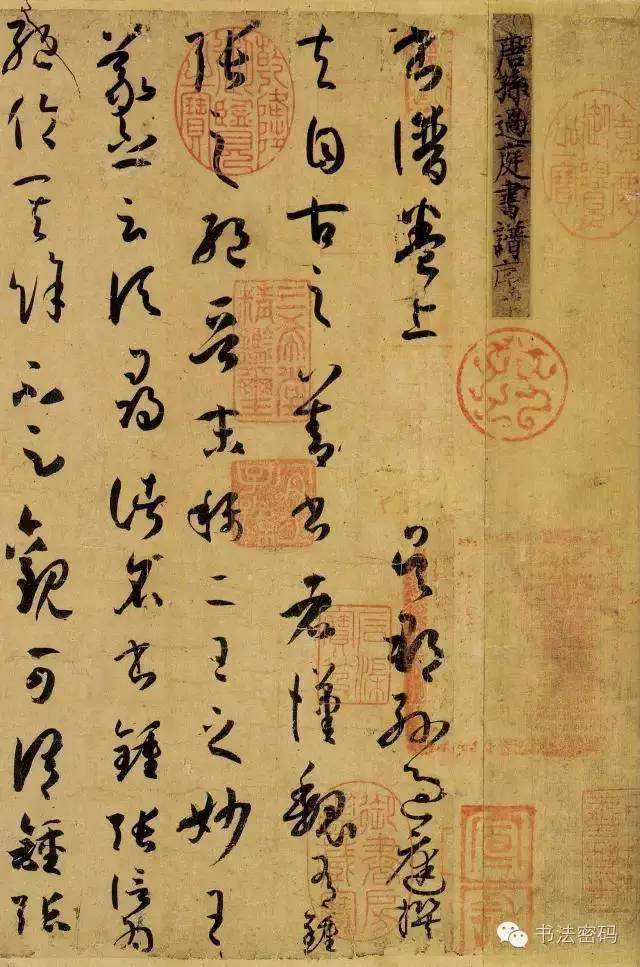 唐孫過庭書譜序
書譜卷上 吳郡孫過庭撰
夫自古之善書者漢魏有鍾
張之絕晉末稱二王之妙王
羲之云頃尋諸名書鍾張信為
絕倫其餘不足觀可謂鍾張
乾隆御覽之寶
三希堂精鑑璽
宜子孫
书法密码